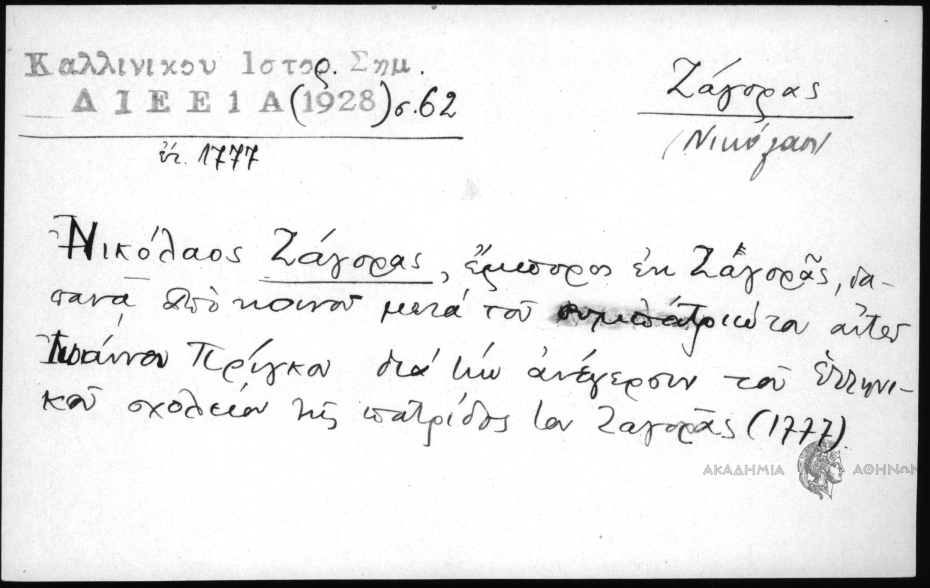 Καλλινικου Ιστορ. Σημ.
Δ Ι Ε Ε 1 Α (1928) σ. 62
ἔτ. 1777
Ζάγορας
(Νικόλαος)
Νικόλαος Ζάγορας, ἔμπορος ἐκ Ζαγορᾶς, δα-
πανᾷ ἀπὸ κοινοῦ μετά τοῦ συμπατριώτου αὐτοῦ
Ἰωάννου Πρίγκου διά τήν ἀνέγερσιν τοῦ ἑλληνι-
κοῦ σχολείου τῆς πατρίδος του Ζαγορᾶς (1777)
ΑΚΑΔΗΜΙΑ ΑΘΗΝΩΝ